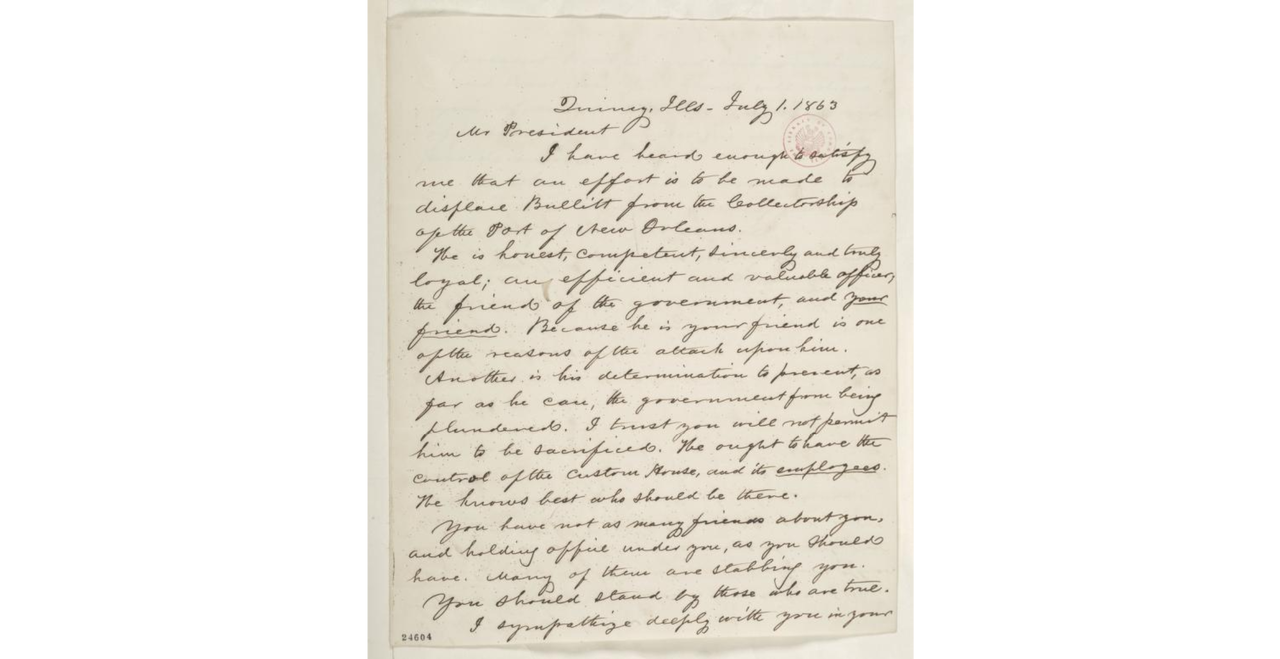 Quincy, Ills - July 1. 1863
Mr President
I have heard enough to satisfy
me that an effort is to be made to
displace Bullitt from the Collectorship
of the Port of New Orleans.
He is honest, competent, sincerly and truly
loyal; an efficient and valuable officer,
the friend of the government, and your
friend. Because he is your friend is one
of the reasons of the attack upon him.
Another is his determination to prevent, as
far as he can, the government from being
plundered. I trust you will not permit
him to be sacrificed. He ought to have the
control of the Custom House, and its employees.
He knows best who should be there.
You have not as many friends about you,
and holding office under you, as you should
have. Many of them are stabbing you.
You should stand by those who are true.
I sympathize deeply with you in your
24604